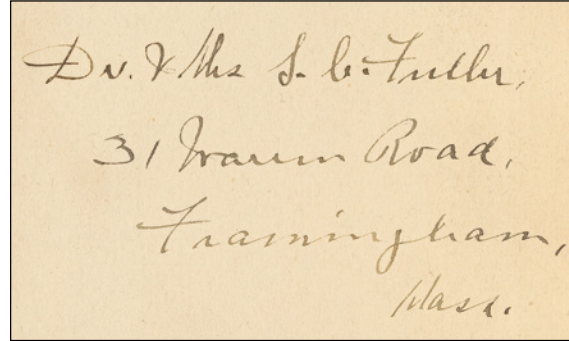 Dr. & Mrs S. C. Fuller,
31 Warren Road,
Framingham,
Mass.